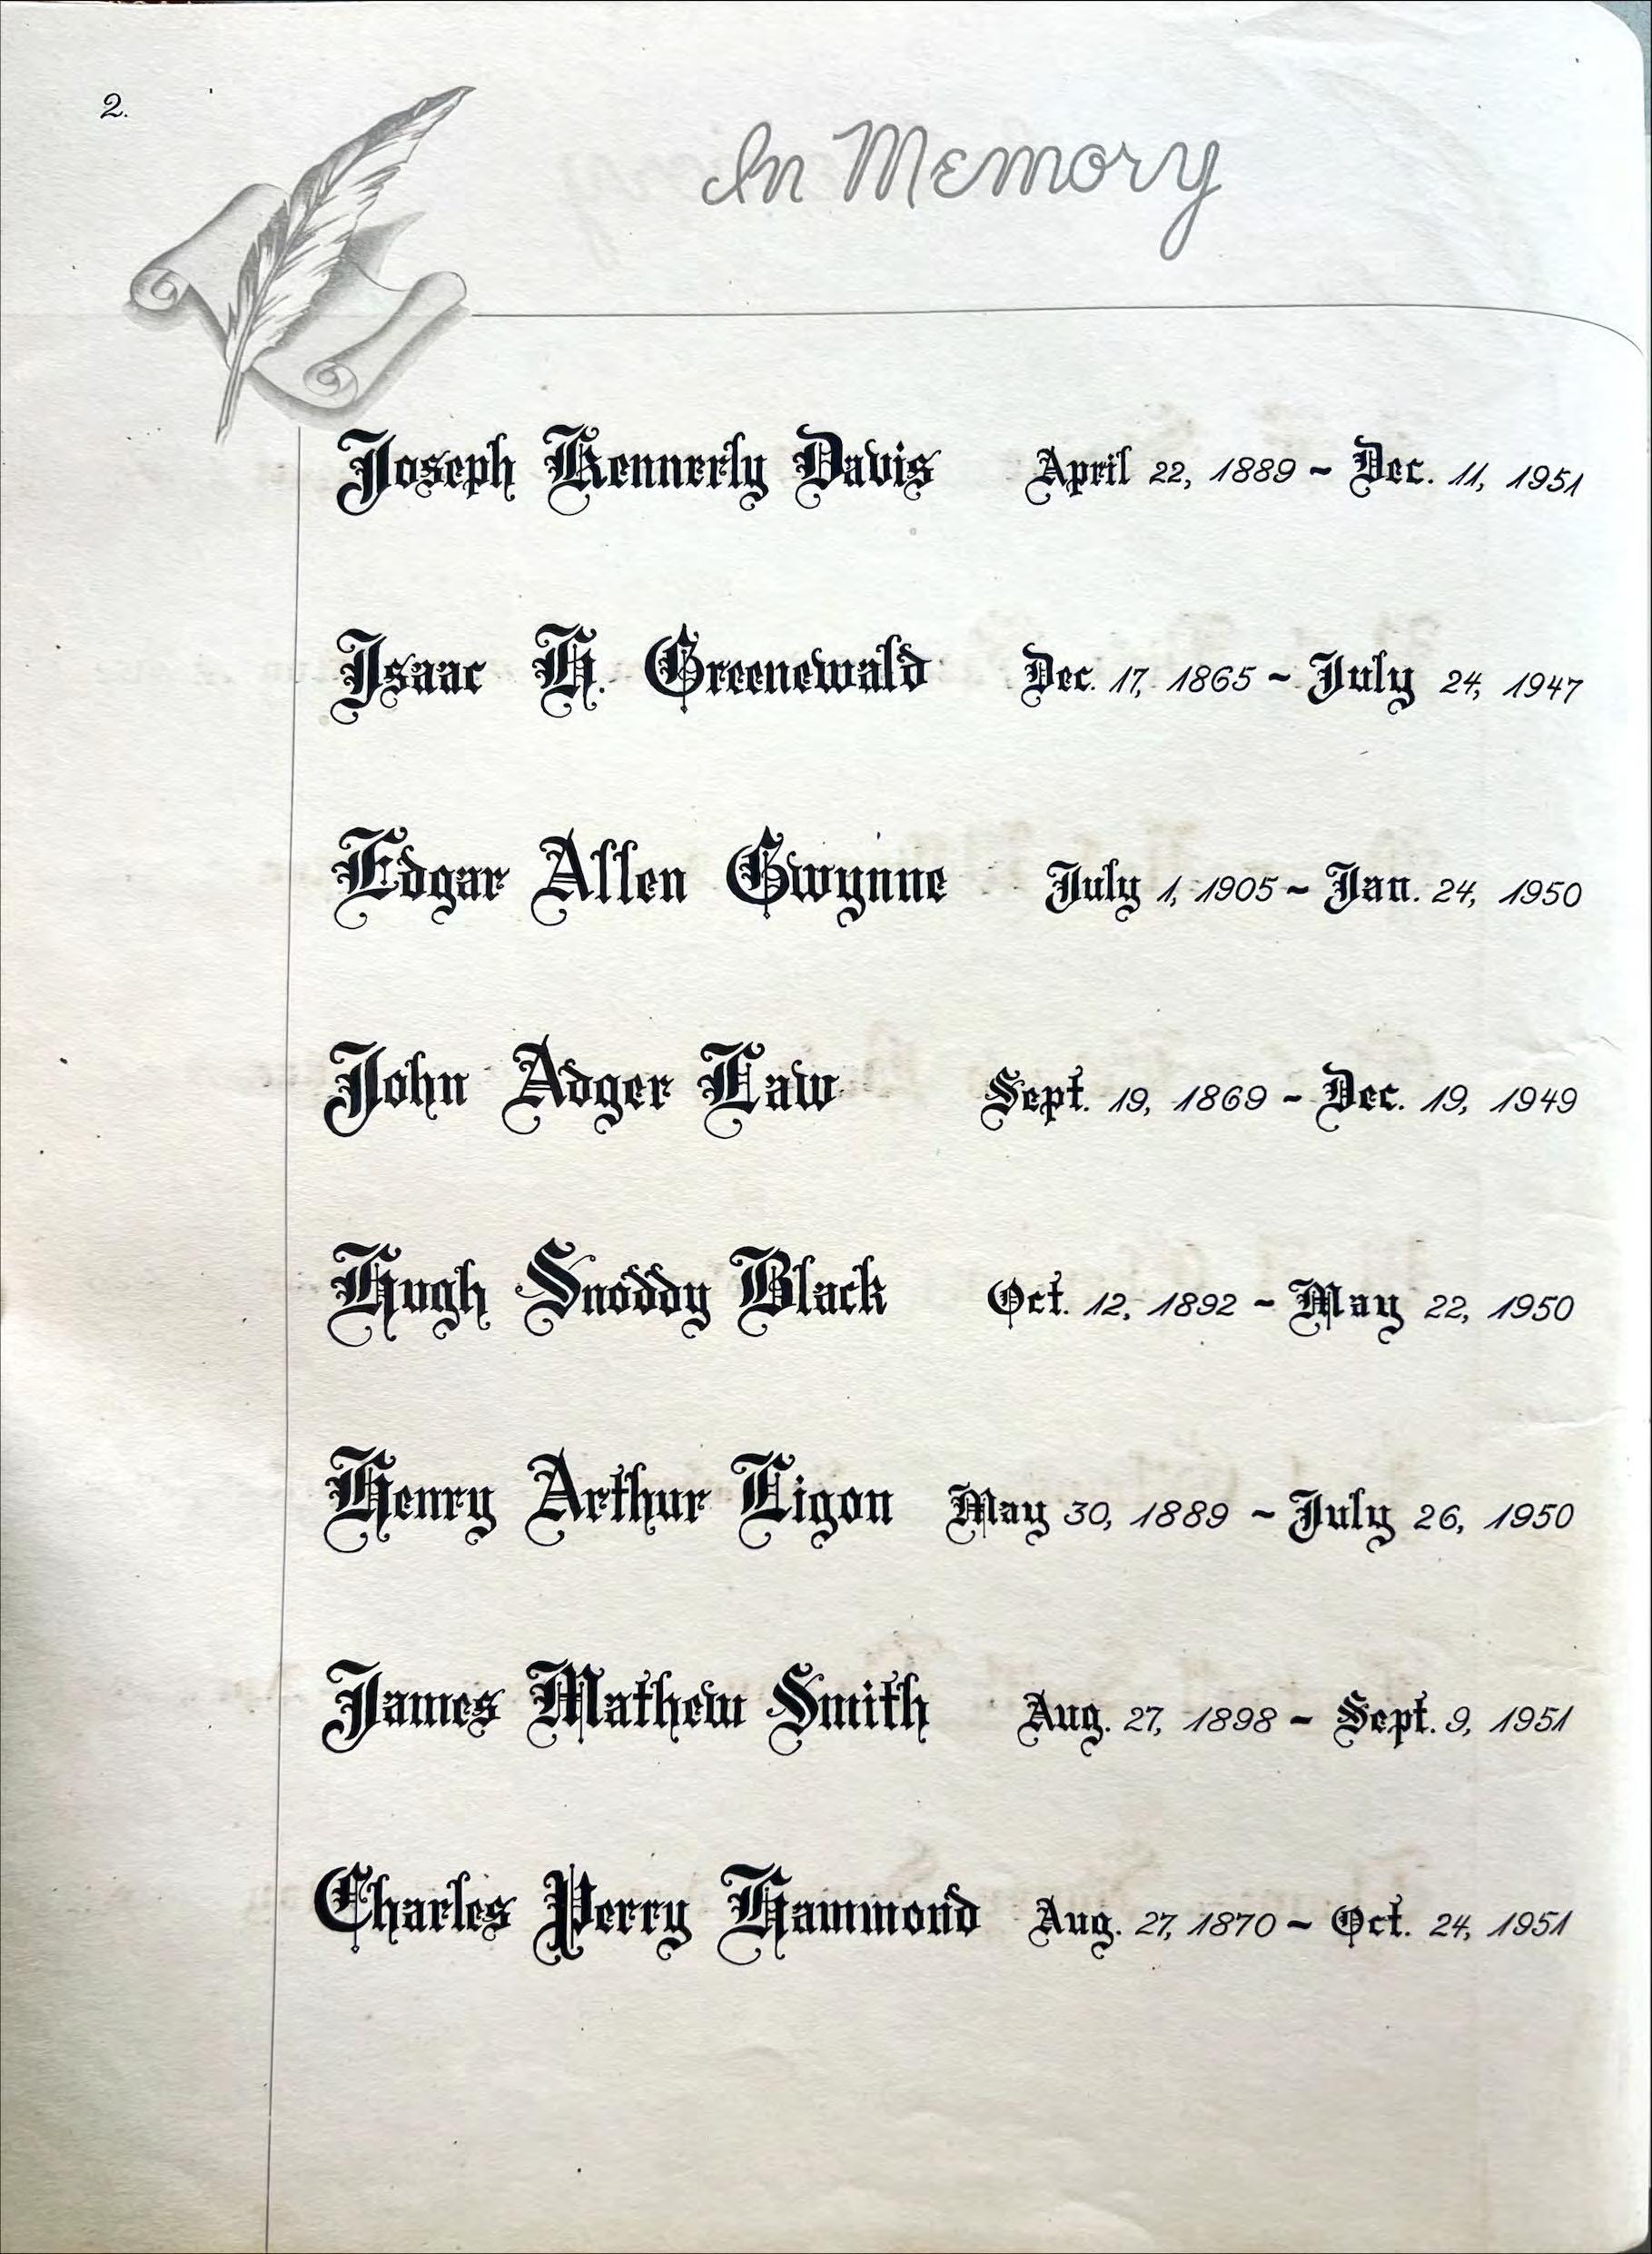 2.
In Memory
Joseph Kennerly Davis April 22, 1889 ~ Dec. 11, 1951
Isaac H. Greenewald Dec. 17, 1865 ~ July 24, 1947
Edgar Allen Gwynne July 1, 1905 ~ Jan. 24, 1950
John Adger Law Sept. 19, 1869 ~ Dec. 19, 1949
Hugh Snoddy Black Oct. 12, 1892 ~ May 22, 1950
Henry Arthur Ligon May 30, 1889 ~ July 26, 1950
James Mathew Smith Aug. 27, 1898 ~ Sept. 9, 1951
Charles Perry Hammond Aug. 27, 1870 ~ Oct. 24, 1951